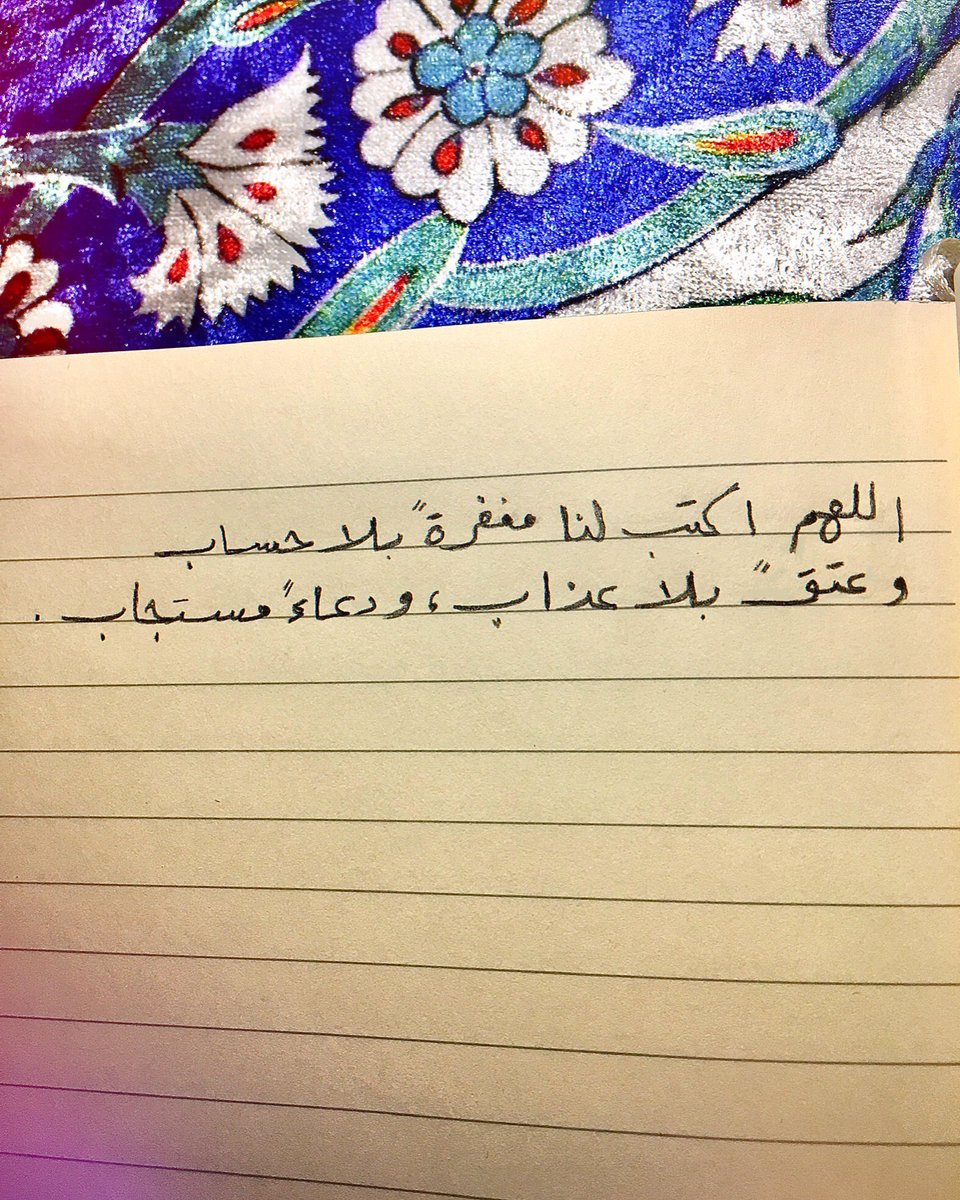 اللهم اكتب لنا مغفرةً بلا حساب
وعتقً بلا عذاب، ودعاءً مستجاب.